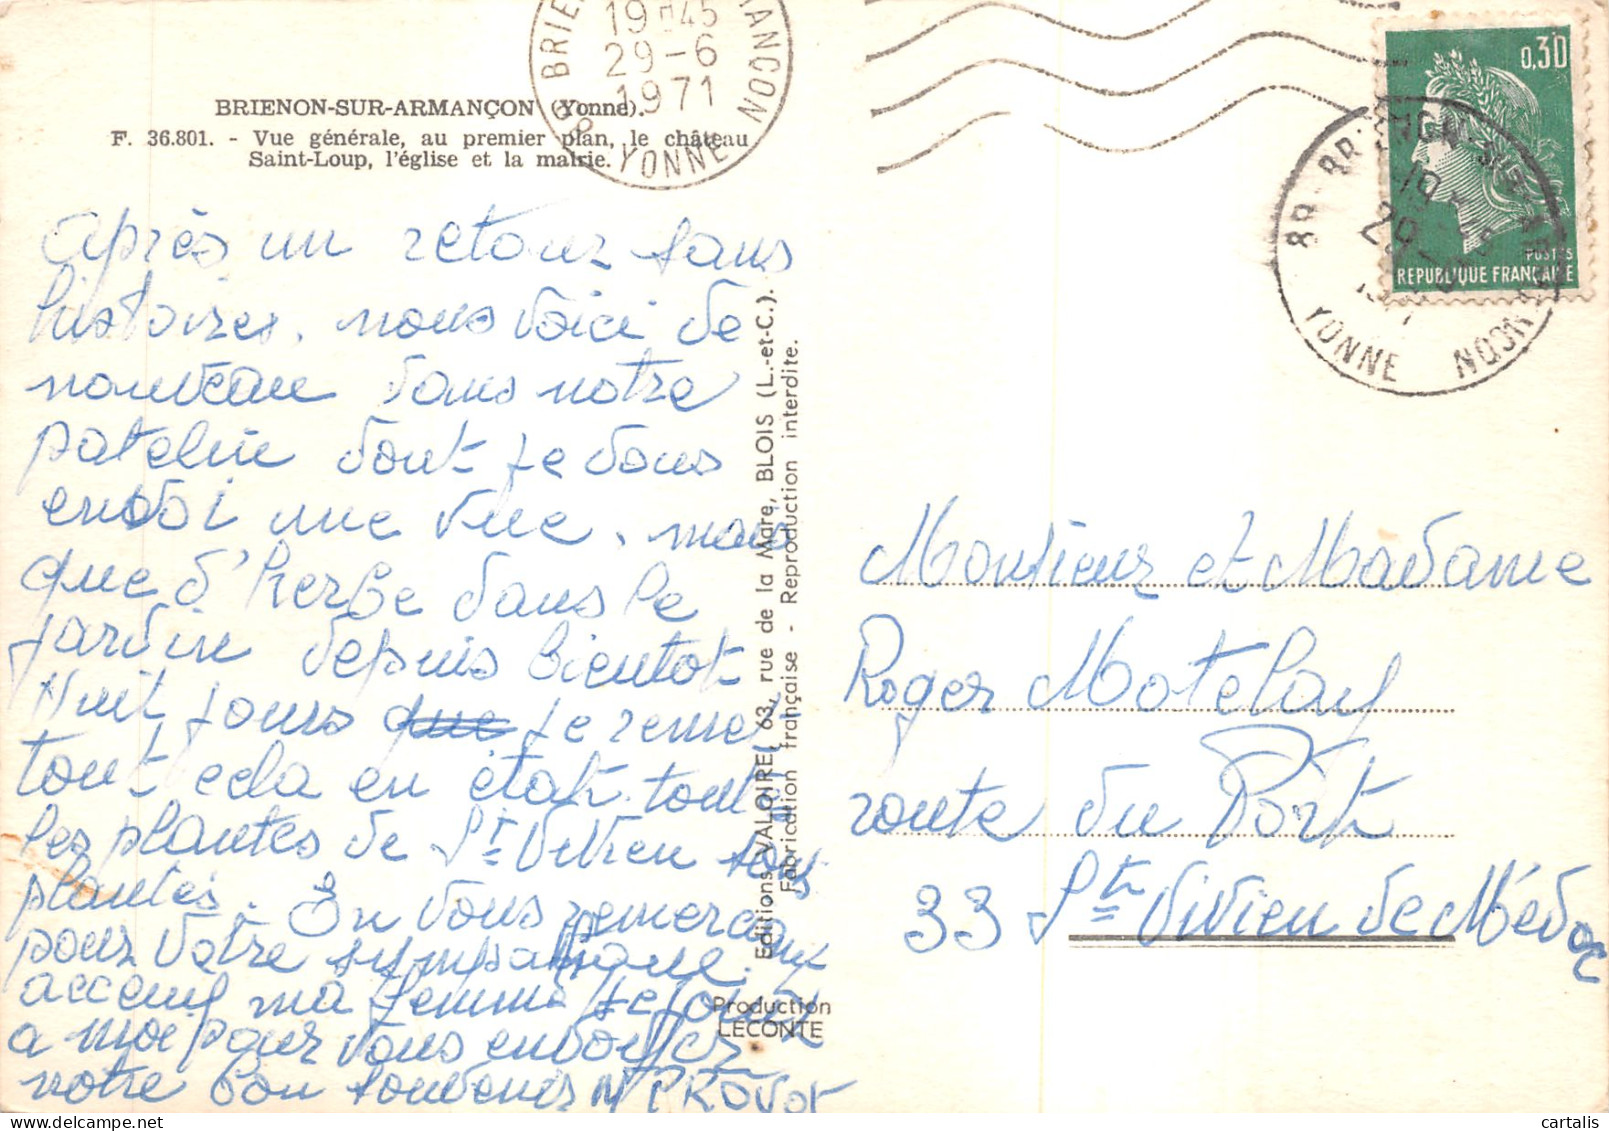 BRIENON-SUR-ARMANÇON (Yonne).
F. 36.801. - Vue générale, au premier plan, le château
Saint-Loup, l'église et la mairie.
19 H45
29-6
1971
89 BRIENON ARMANÇON
YONNE
0,30
POSTES
REPUBLIQUE FRANÇAISE
89 BRIENON SUR ARMANÇON
YONNE
Après un retour sans
histoires, nous voici de
nouveau dans notre
patelin dont je vous
envoi une vue, mais
que d'herbe dans le
jardin depuis bientot
huit jours que je remet
tout cela en état. toutes
les plantes de St Vivien sont
plantés. En vous remerciant
pour votre sympathique
acceuil ma femme se joint
a moi pour vous envoyez
notre bon souvenir M PROVOT
Editions VALOIRE, 63, rue de la Mare, BLOIS (L.-et-C.).
Fabrication française - Reproduction interdite.
Production
LECONTE
Monsieur et Madame
Roger Motelay
route du Port
33 St Vivien de Médoc
cartalis.com